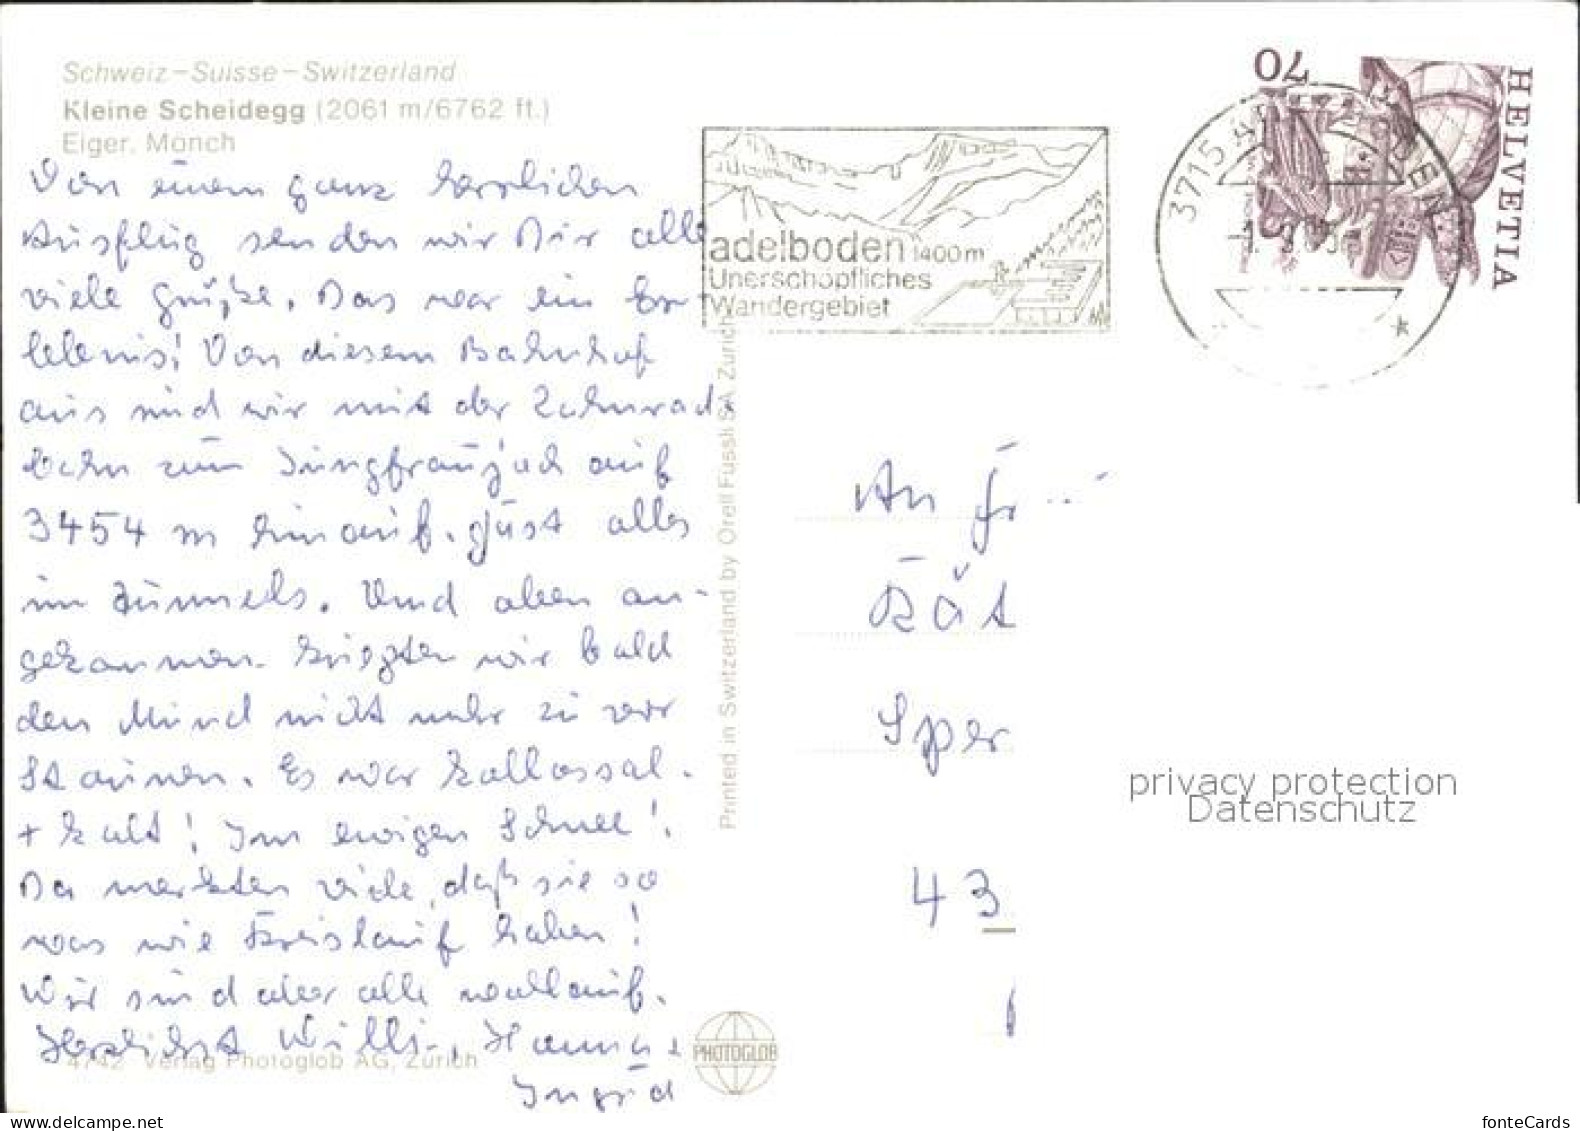 Schweiz–Suisse–Switzerland
Kleine Scheidegg (2061 m/6762 ft.)
Eiger, Mönch
Von einem ganz herrlichen
Ausflug senden wir Dir alle
viele Grüße. Das war ein Er-
lebnis! Von diesem Bahnhof
aus sind wir mit der Zahnrad-
bahn zum Jungfraujoch auf
3454 m hinauf. Just alles
im Tunnels. Und oben an-
gekommen kriegten wir bald
den Mund nicht mehr zu vor
Staunen. Es war kollossal.
+ kalt! Im ewigen Schnee!
Da merkten viele, daß sie so
was wie Kreislauf haben!
Wir sind aber alle wohlauf.
Herzlichst Willi, Hanna +
Ingrid
4742 Verlag Photoglob AG, Zürich
PHOTOGLOB
Printed in Switzerland by Orell Füssli SA Zürich
adelboden 1400m
Unerschöpfliches
Wandergebiet
70
HELVETIA
3715
An Fr
Kät
Sper
43
privacy protection
Datenschutz
www.delcampe.net
fonteCards